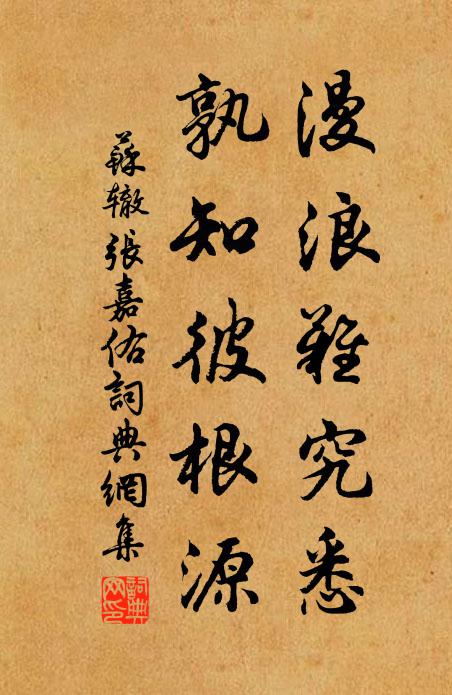 漫浪難究悉
孰知彼根源
蘇辙張嘉佑詞典網集
詞典網印